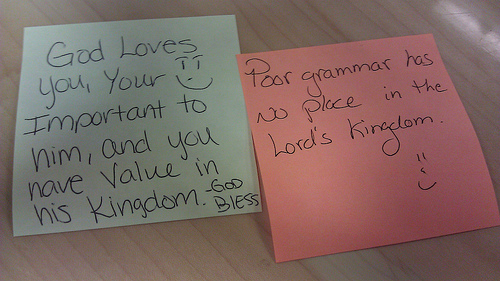 God Loves
you, Your
Important to
him, and you
have Value in
his Kingdom. -GOD
BLESS
Poor grammar has
no place in the
Lord's Kingdom.